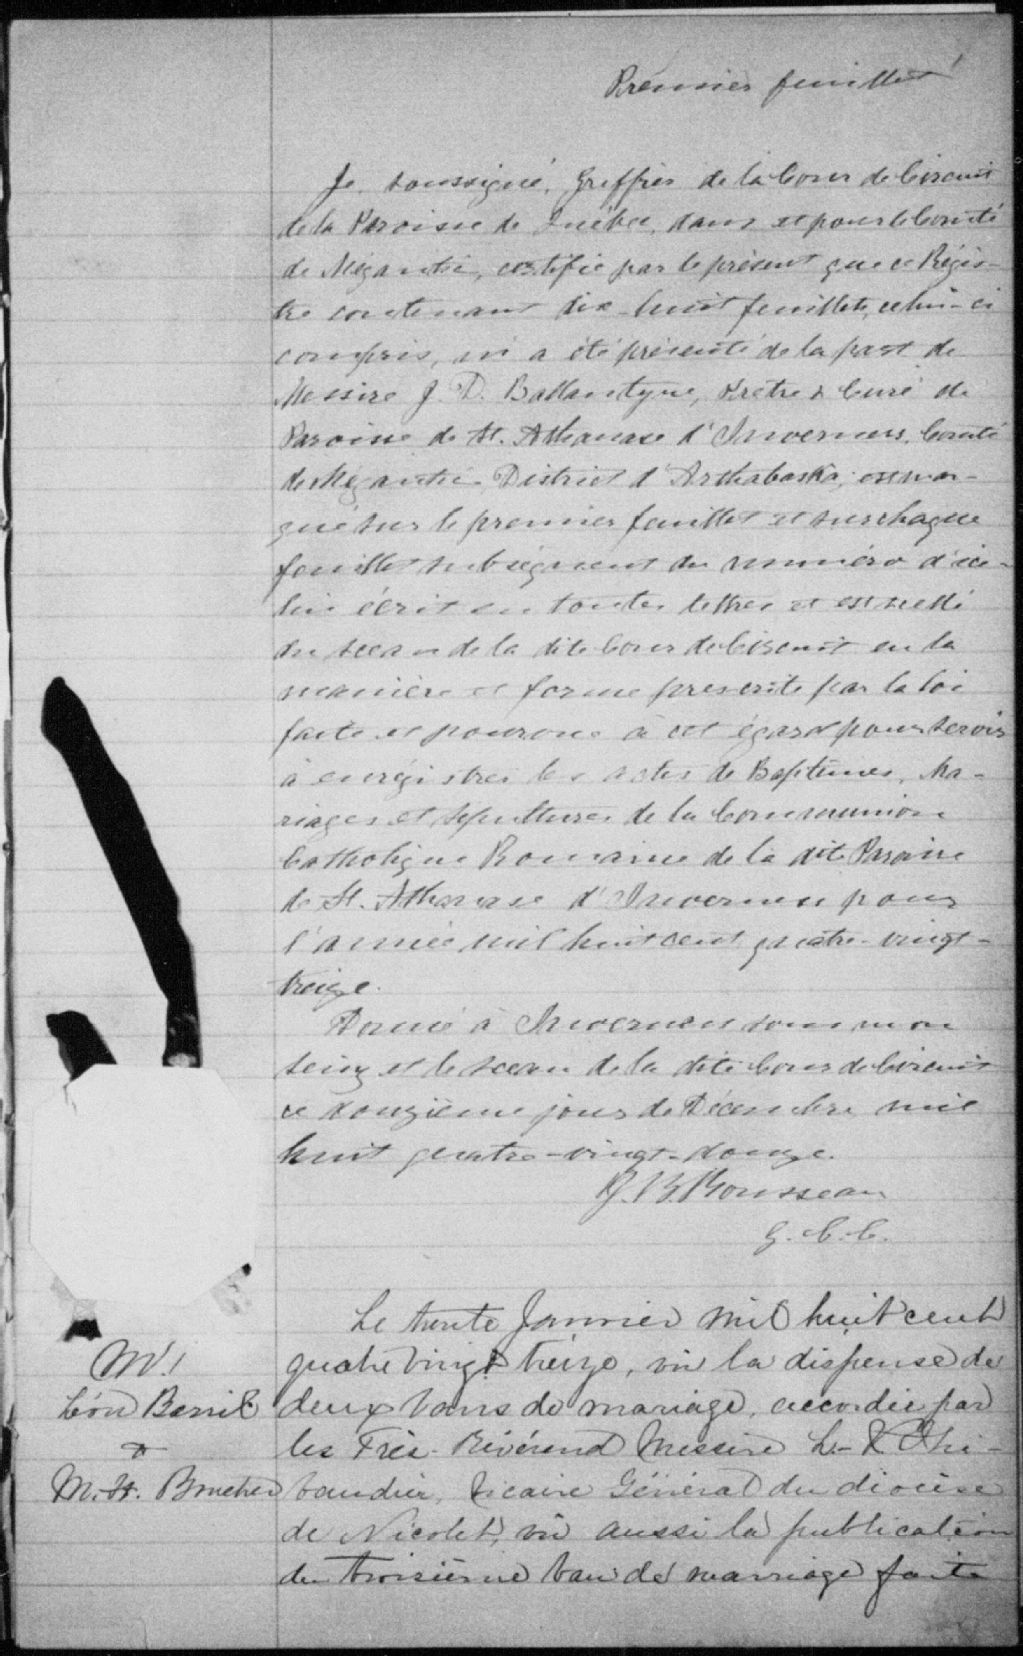 Premier feuillet
Je soussigné, Greffier de la Cour de Circuit
de la Paroisse de Québec, dans et pour le Comté
de Mégantic, certifie par le présent que ce Régis-
tre contenant dix-huit feuillets, celui-ci
compris, m'a été présenté de la part de
Messire J. D. Ballantyne, Prêtre & Curé de
Paroisse de St. Athanase d'Inverness, Comté
de Mégantic, District d'Arthabaska, est mar-
qué sur le premier feuillet et sur chaque
feuillet subséquent du numéro d'ice-
lui écrit en toutes lettres et est scellé
du sceau de la dite Cour de Circuit en la
manière et forme prescrite par la loi
faite et pourvue à cet égard pour servir
à enrégistrer les actes de Baptêmes, Ma-
riages et sépultures de la Communion
Catholique Romaine de la dite Paroisse
de St. Athanase d'Inverness pour
l'année mil huit cent quatre-vingt-
treize.
Donné à Inverness sous mon
seing et le sceau de la dite Cour de Circuit
ce douzième jour de Décembre mil
huit quatre-vingt-douze.
Rousseau
G. C. C.
Le trente Janvier mil huit cent
M1
quatre vingt treize, vu la dispense de
Léon
deux bans de mariage, accordée par
&
les Très-Révérend Messire Thi-
M. Boucher
baudier, Vicaire Général du diocèse
de Nicolet, vu aussi la publication
du troisième ban de marriage faite